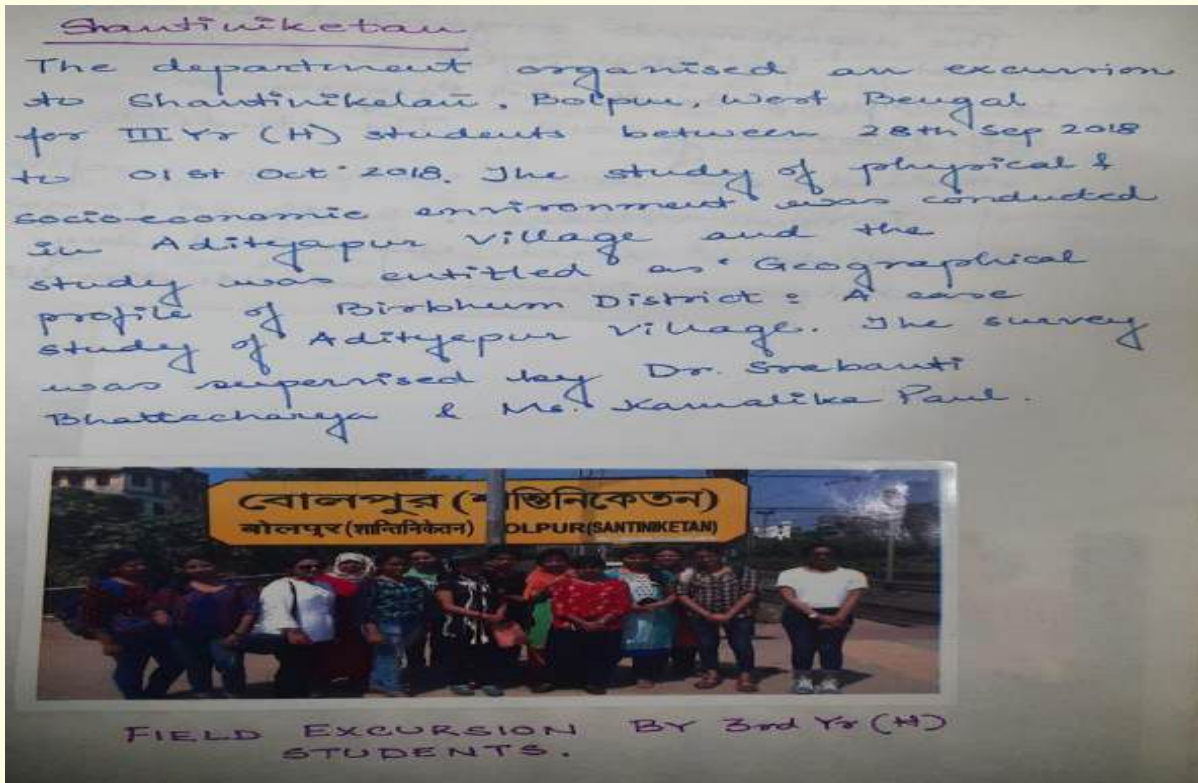 Shantiniketan
The department organised an excursion
to Shantiniketan, Bolpur, West Bengal
for III Yr (H) students between 28th Sep 2018
to 01st Oct 2018. The study of physical &
socio-economic environment was conducted
in Adityapur Village and the
study was entitled as "Geographical
profile of Birbhum District : A case
study of Adityapur Village. The survey
was supervised by Dr. Srabanti
Bhattacharya & Ms. Kamalika Paul.
বোলপুর (শান্তিনিকেতন)
बोलपुर (शान्तिनिकेतन) OLPUR(SANTINIKETAN)
FIELD EXCURSION BY 3rd Yr (H)
STUDENTS.